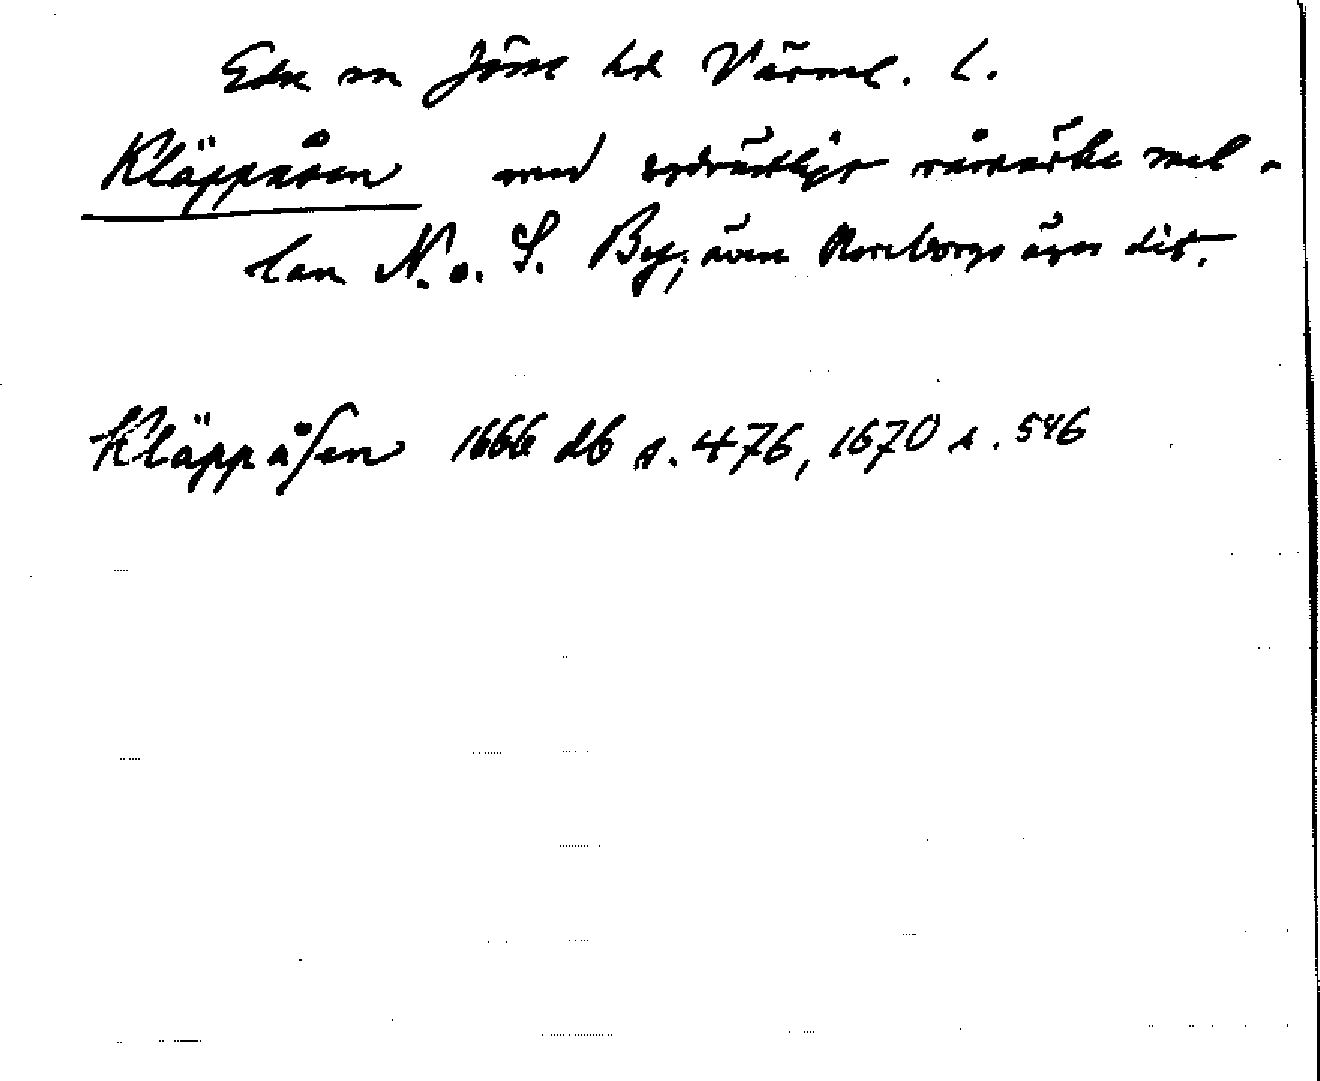 Eda sn Jösse hd Värml. l.
Kläppåsen med ordentligt råmärke mel-
lan N. o. S. By, även Moreborgs ägor dit.
Kläppåsen 1666 db s. 476, 1670 s. 546